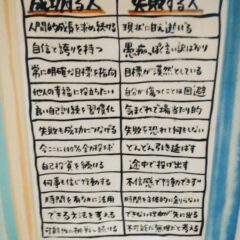 成功する人 失敗する人
人間的成長を求め続ける 現状に甘え逃げる
自信と誇りを持つ 愚痴、ばかり
常に明確な目標を指向 目標が漠然としている
他人の幸福に役立ちたい 自分が傷つくことは回避
良い自己訓練を習慣化 気まぐれで場当たり的
失敗も成功につなげる 失敗を恐れて何もしない
今ここに100%全力投球 どんどん引き延ばす
自己投資を続ける 途中で投げ出す
何事も信じ行動する 不信感で行動できず
時間を有効に活用 時間を主体的に
できる方法を考える できない理由が先に出る
可能性に挑戦し続ける 不可能だ無理だと考える